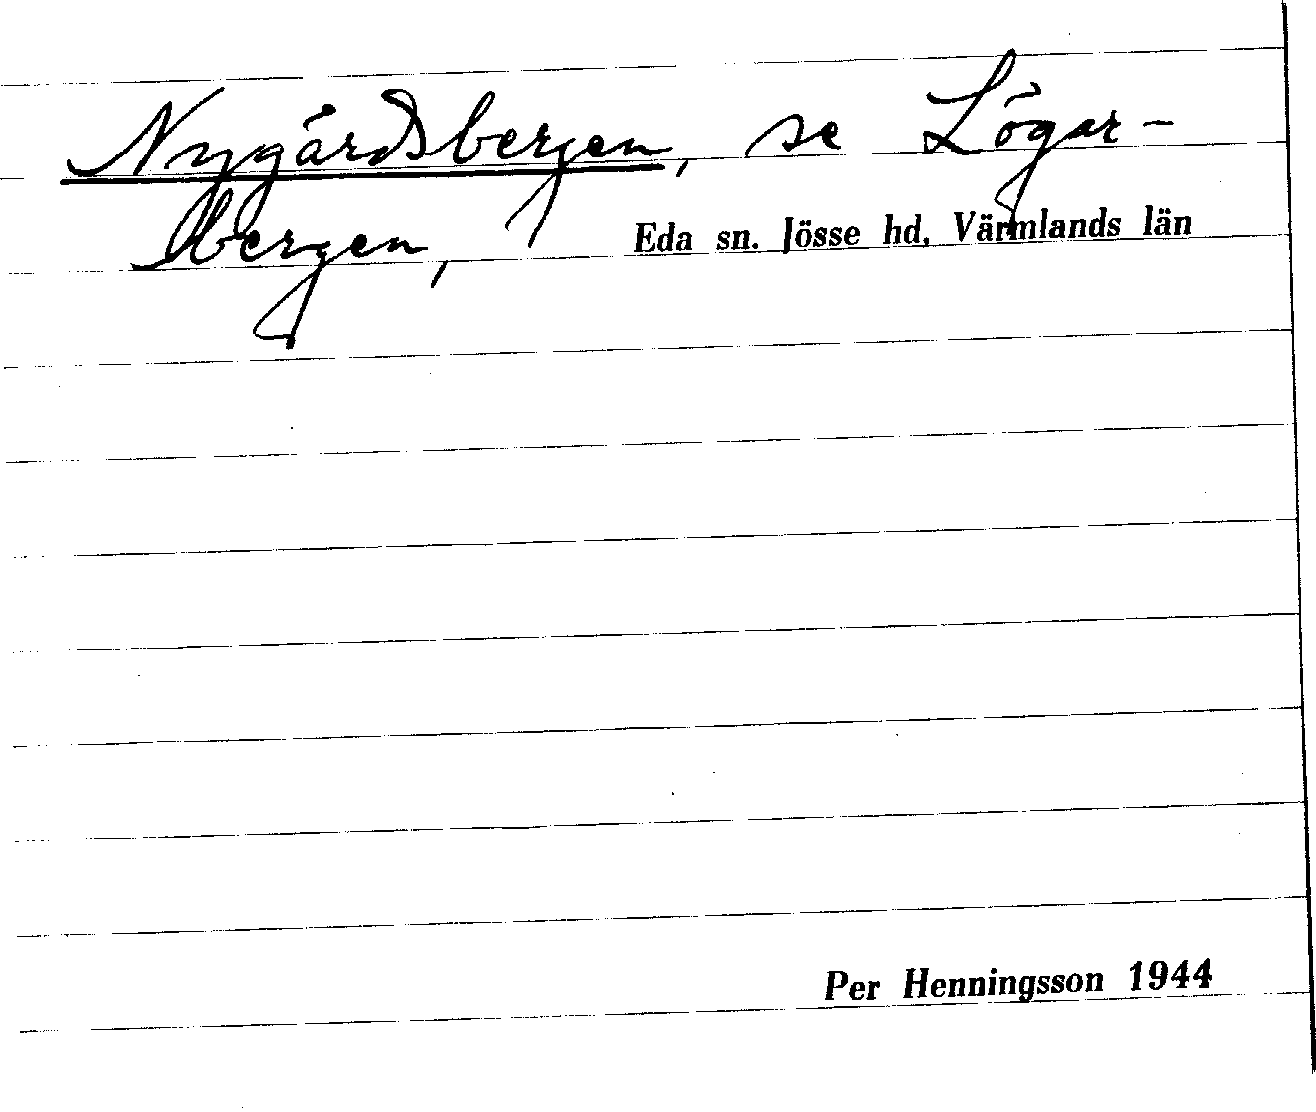 Nygårdsbergen, se Lögar-
bergen,
Eda sn. Jösse hd, Värmlands län
Per Henningsson 1944